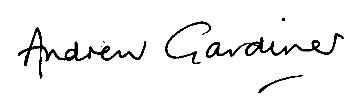 Andrew Gardiner